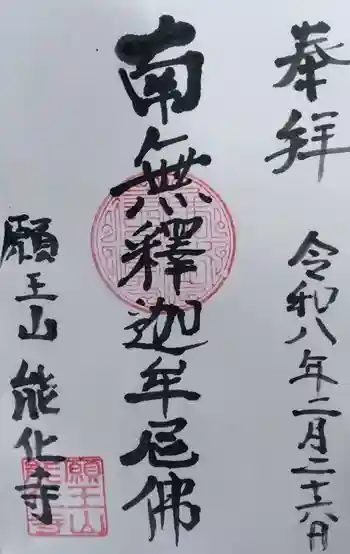 奉拝
令和八年二月二十六日
南無釋迦牟尼佛
願王山能化寺
願王山
能化寺